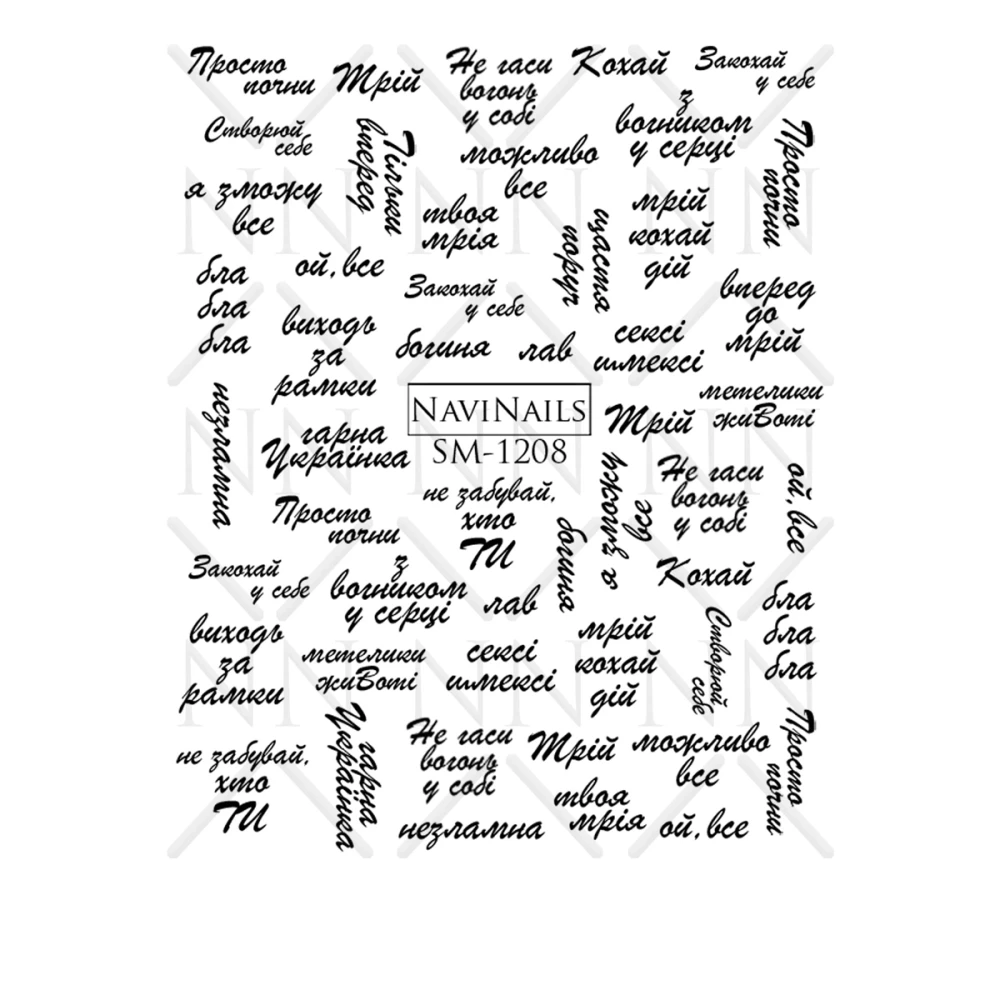 Просто
почни
Мрій
Не гаси
вогонь
у собі
Кохай
Закохай
у себе
Створюй
себе
Тільки
вперед
можливо
все
з
вогником
у серці
Просто
почни
я зможу
все
твоя
мрія
щастя
поруч
мрій
кохай
дій
бла
бла
бла
ой, все
Закохай
у себе
вперед
до
мрій
виходь
за
рамки
богиня
лав
сексі
шмексі
незламна
NAVINAILS
SM-1208
Мрій
метелики
жиВоті
гарна
Українка
не забувай,
хто
ТИ
я зможу
все
Не гаси
вогонь
у собі
ой, все
Просто
почни
богиня
Закохай
у себе
з
вогником
у серці
лав
Кохай
бла
бла
бла
виходь
за
рамки
метелики
жиВоті
сексі
шмексі
мрій
кохай
дій
Створюй
себе
не забувай,
хто
ТИ
гарна
Українка
Не гаси
вогонь
у собі
Мрій
можливо
все
Просто
почни
незламна
твоя
мрія
ой, все